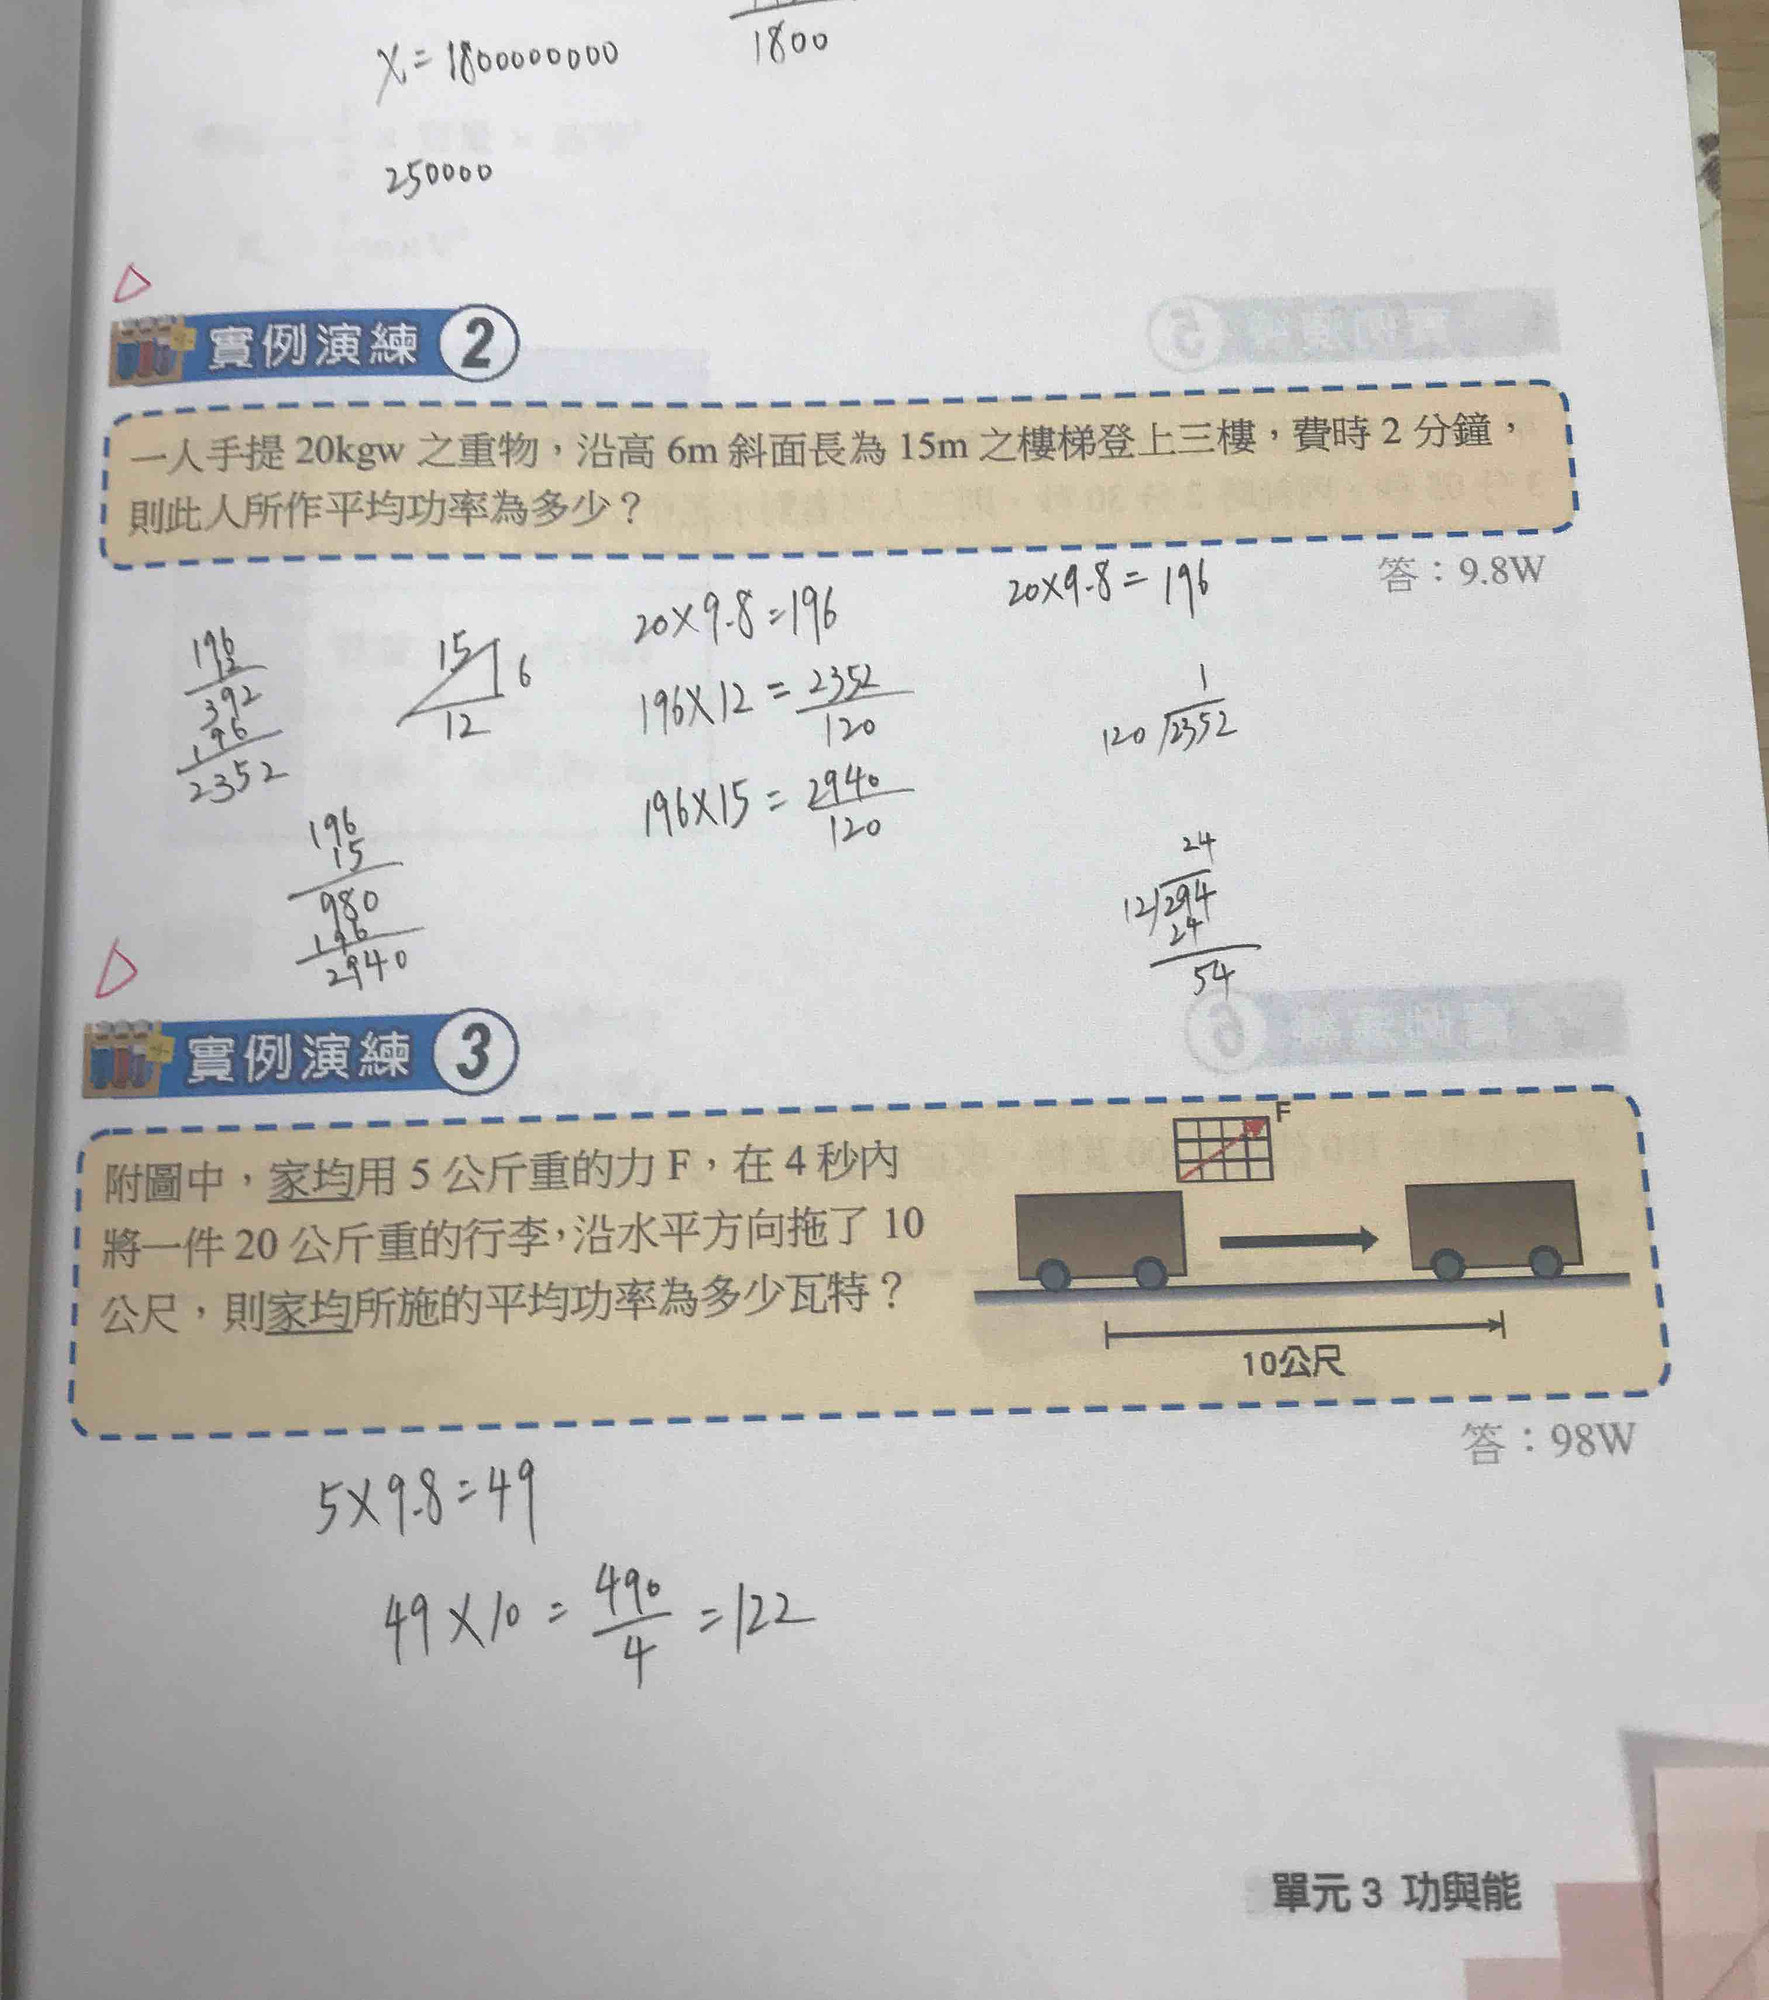 x = 1800000000
1800
250000
實例演練 2
一人手提 20kgw 之重物，沿高 6m 斜面長為 15m 之樓梯登上三樓，費時 2 分鐘，
則此人所作平均功率為多少？
答：9.8W
20×9.8=196
20×9.8=196
196
12
392
196
2352
15
6
12
196×12=2352/120
1
120 2352
196×15=2940/120
196
15
980
196
2940
24
12 294
24
54
實例演練 3
附圖中，家均用 5 公斤重的力 F，在 4 秒內
將一件 20 公斤重的行李，沿水平方向拖了 10
公尺，則家均所施的平均功率為多少瓦特？
F
10公尺
答：98W
5×9.8=49
49×10=490/4=122
單元 3 功與能